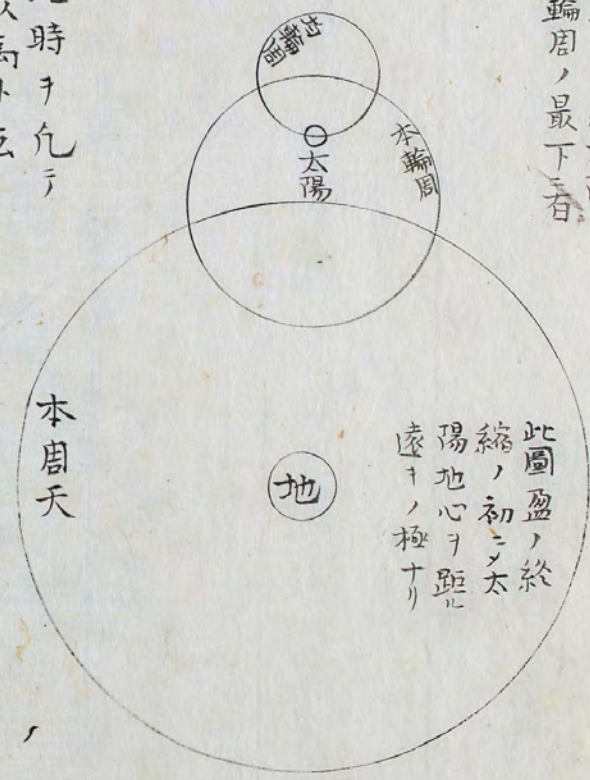 輪周ノ最下ニ有
均輪周
本輪周
太陽
此圖盈ノ終
縮ノ初ニメ太
陽地心ヲ距ル
遠キノ極ナリ
地
本周天
時ヲ凡テ